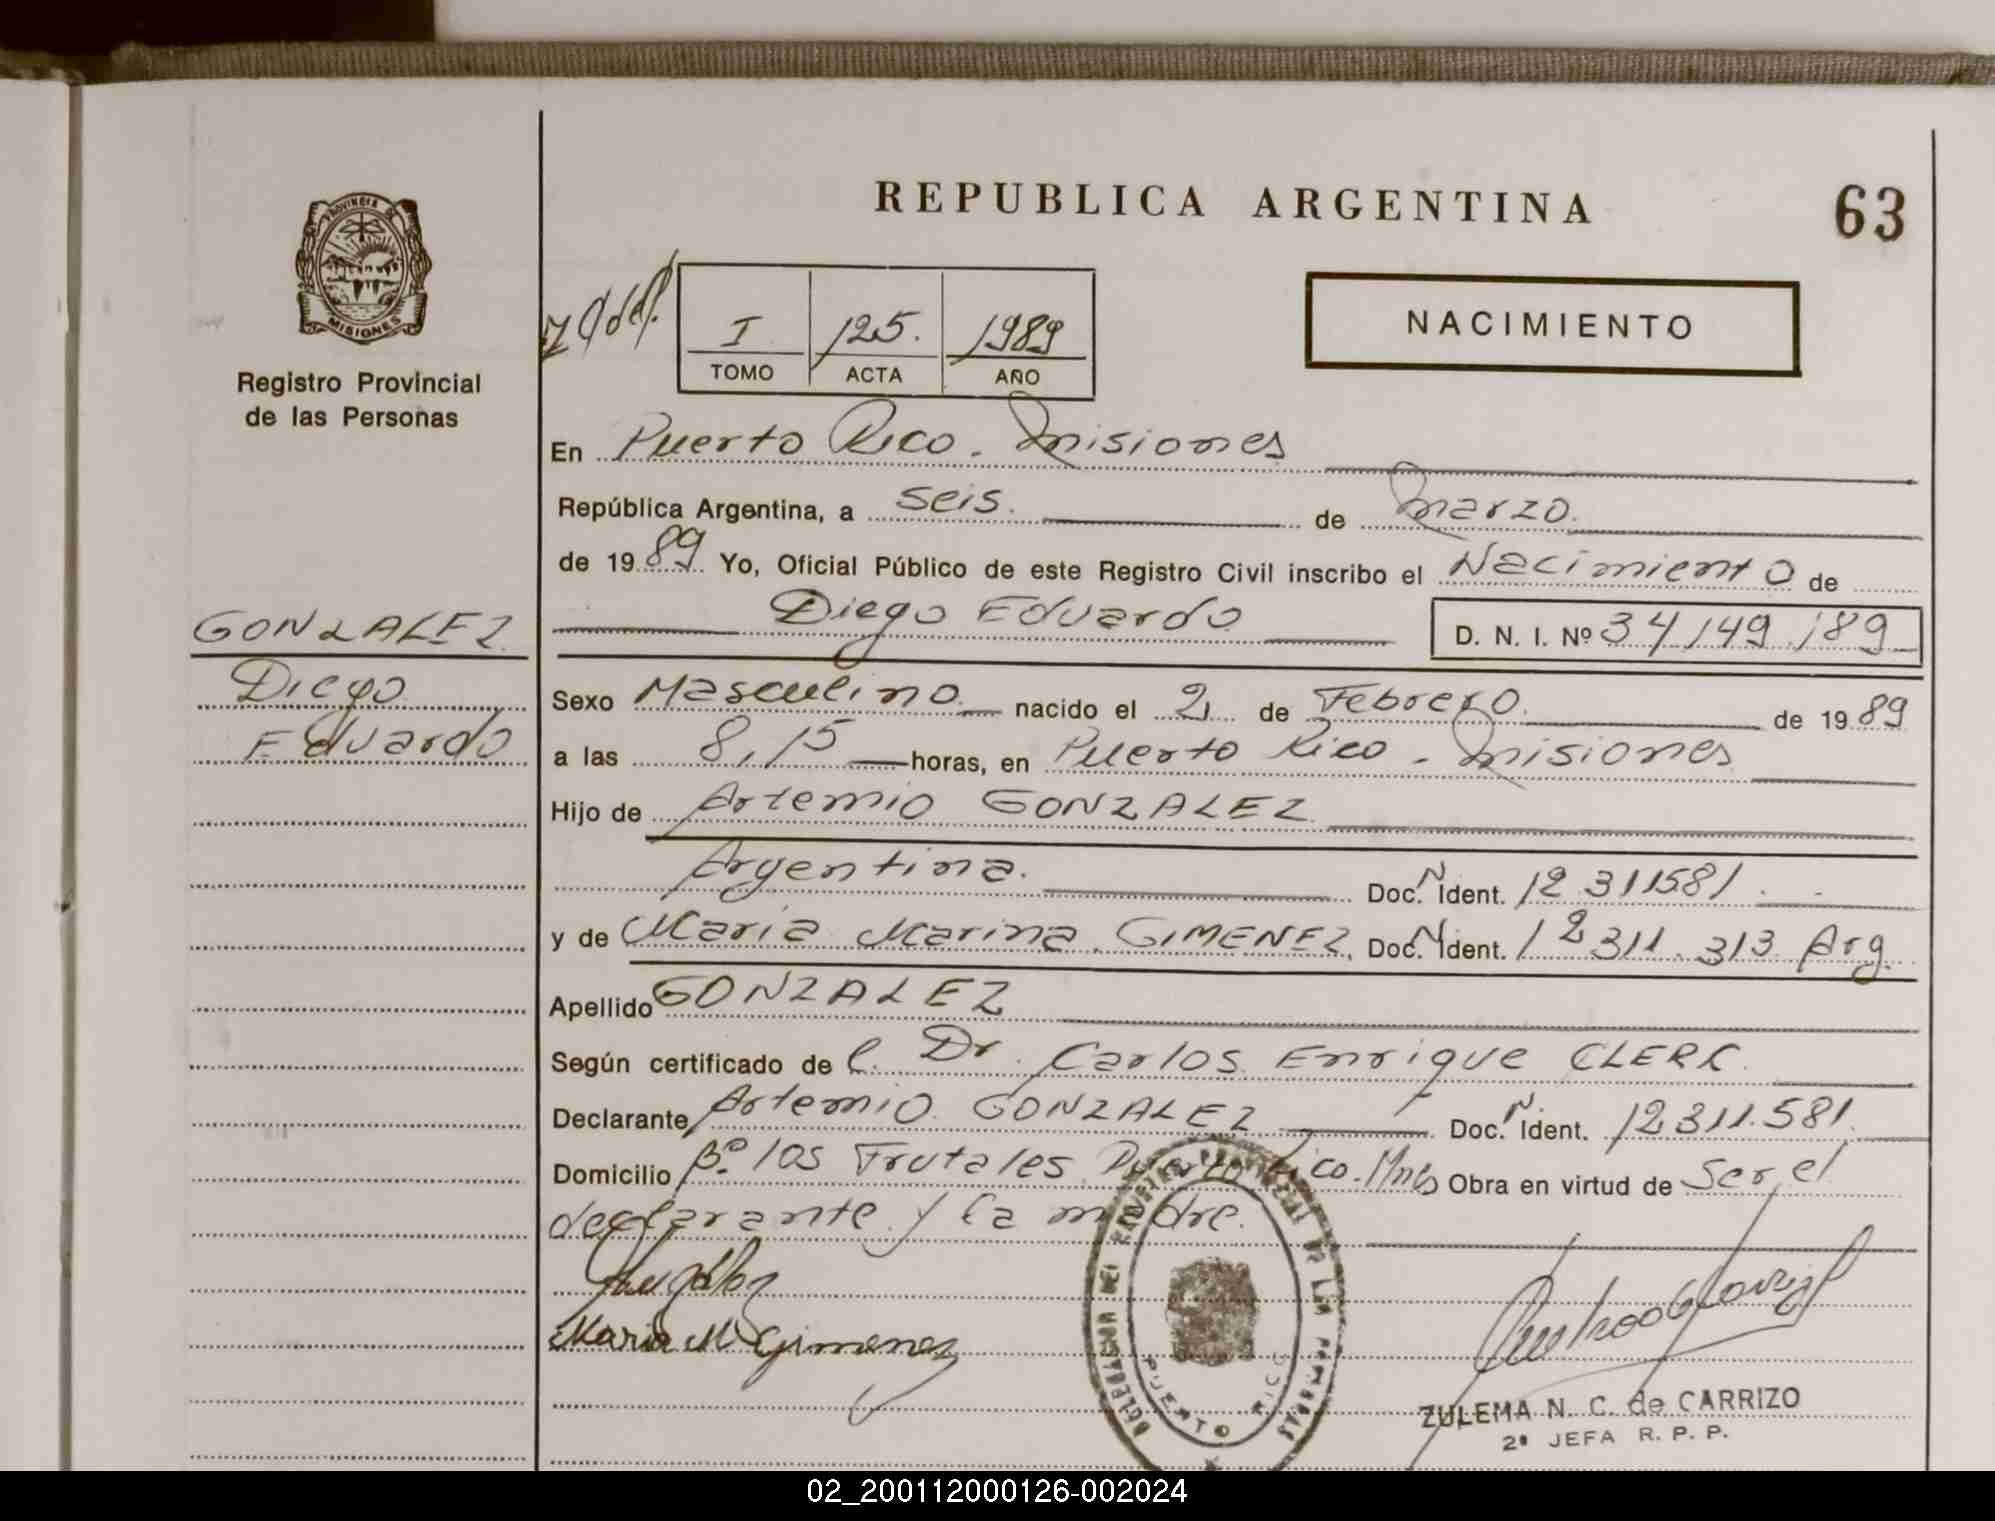 REPUBLICA ARGENTINA
63
PROVINCIA DE
MISIONES
Registro Provincial
de las Personas
I 125. 1989
TOMO ACTA AÑO
NACIMIENTO
En Puerto Rico. Misiones
República Argentina, a seis. de Marzo.
de 1989 Yo, Oficial Público de este Registro Civil inscribo el Nacimiento de
Diego Eduardo D. N. I. Nº 34149189
GONZALEZ
Diego
Eduardo
Sexo Masculino nacido el 2 de Febrero. de 1989
a las 8,15 horas, en Puerto Rico - Misiones
Hijo de Artemio GONZALEZ
Argentina. Doc. N Ident. 12 311581.
y de Maria Marina GIMENEZ, Doc. N Ident. 12 311.313 Arg.
Apellido GONZALEZ
Según certificado de l. Dr. Carlos Enrique CLERC
Declarante Artemio GONZALEZ Doc. N. Ident. 12311.581.
Domicilio Bº los Frutales Puerto Rico. Mnes Obra en virtud de ser el
declarante y la madre.
Maria M Gimenez
DELEGACION DEL REGISTRO PROVINCIAL DE LAS PERSONAS
PUERTO RICO
ZULEMA N. C. de CARRIZO
2ª JEFA R. P. P.
02_200112000126-002024